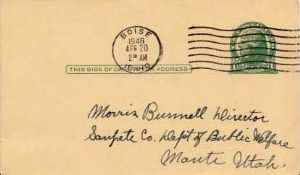 BOISE
1946
APR 20
AM
IDAHO
THIS SIDE OF CARD IS FOR ADDRESS
Morris Bunnell Director
Sanpete Co. Dept of Public Welfare
Manti Utah.